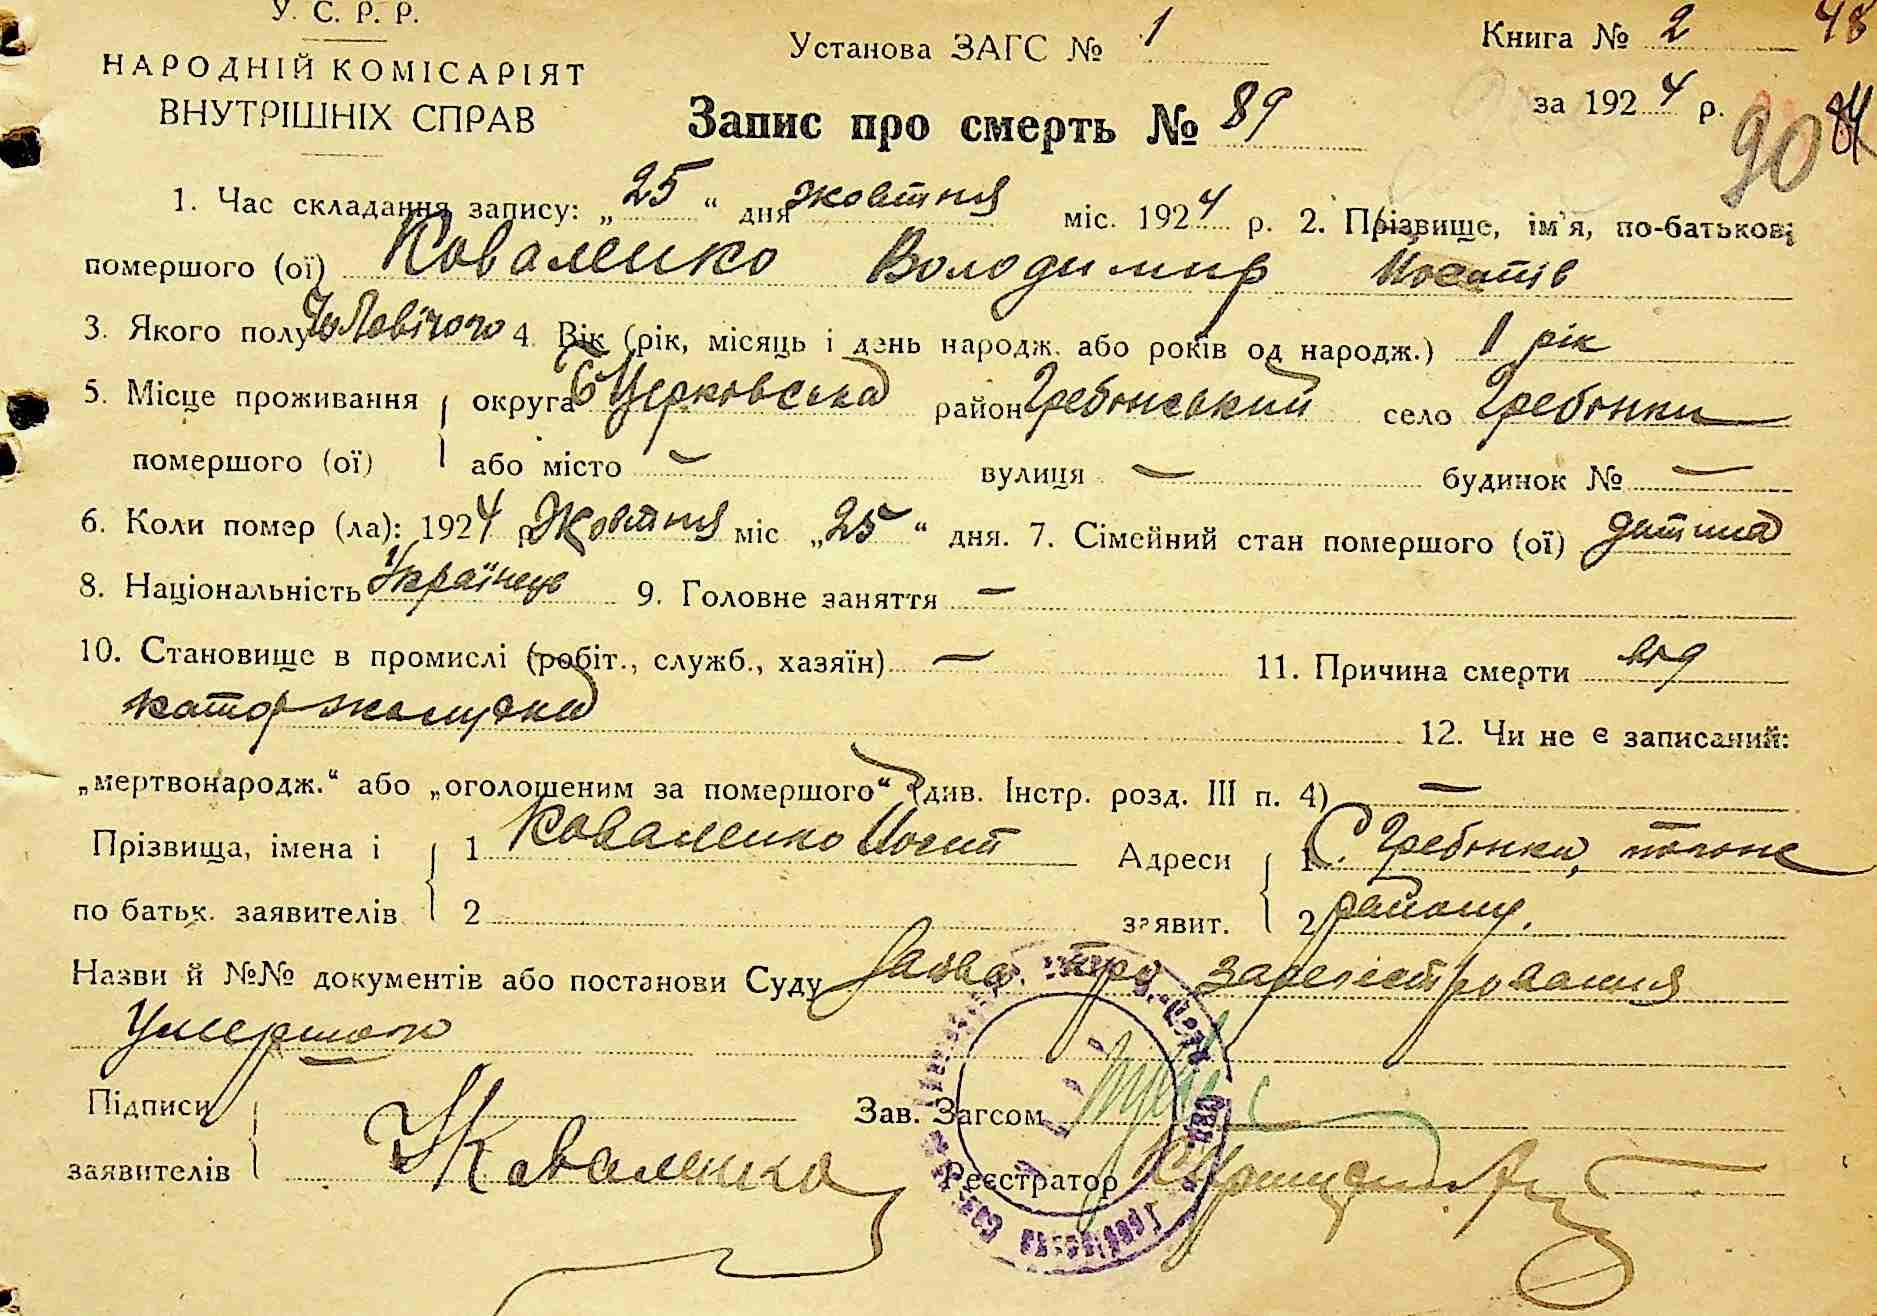 У. С. Р. Р.
НАРОДНІЙ КОМІСАРІЯТ
ВНУТРІШНІХ СПРАВ
Установа ЗАГС № 1
Книга № 2 48
за 1924 р. 90 84
Запис про смерть № 89
1. Час складання запису: „25“ дня жовтня міс. 1924 р. 2. Прізвище, ім'я, по-батькові
помершого (ої) Коваленко Володимир Йосипів
3. Якого полу Чоловічого 4. Вік (рік, місяць і день народж. або років од народж.) 1 рік
5. Місце проживання округа Б Церковська район Гребінський село Гребінки
помершого (ої) або місто — вулиця — будинок № —
6. Коли помер (ла): 1924 р. Жовтня міс „25“ дня. 7. Сімейний стан помершого (ої) дитина
8. Національність Українець 9. Головне заняття —
10. Становище в промислі (робіт., служб., хазяїн) — 11. Причина смерти від
катар жалудка
12. Чи не є записаний:
„мертвонародж.“ або „оголошеним за помершого“ (див. Інстр. розд. III п. 4) —
Прізвища, імена і 1 Коваленко Йосип Адреси 1 С. Гребінки,
по батьк. заявителів 2 заявит. 2 району.
Назви й №№ документів або постанови Суду Заява про зарегістровання
Умершого
Підписи Зав. Загсом
заявителів Коваленко Реєстратор